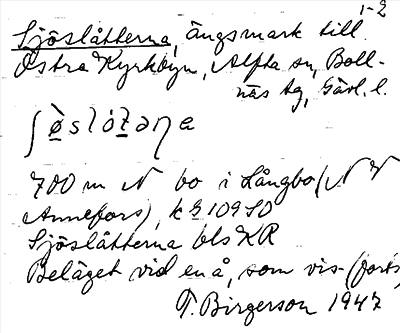 1-2
Sjöslåtterna, ängsmark till
Östra Kyrkbyn, Alfta sn, Boll-
näs tg, Gävl. l.
700 m N bo i Långbo (N V
Annefors), k 109 SO
Sjöslåtterna bls KR
Beläget vid en å, som vis- (forts)
T. Birgerson 1947